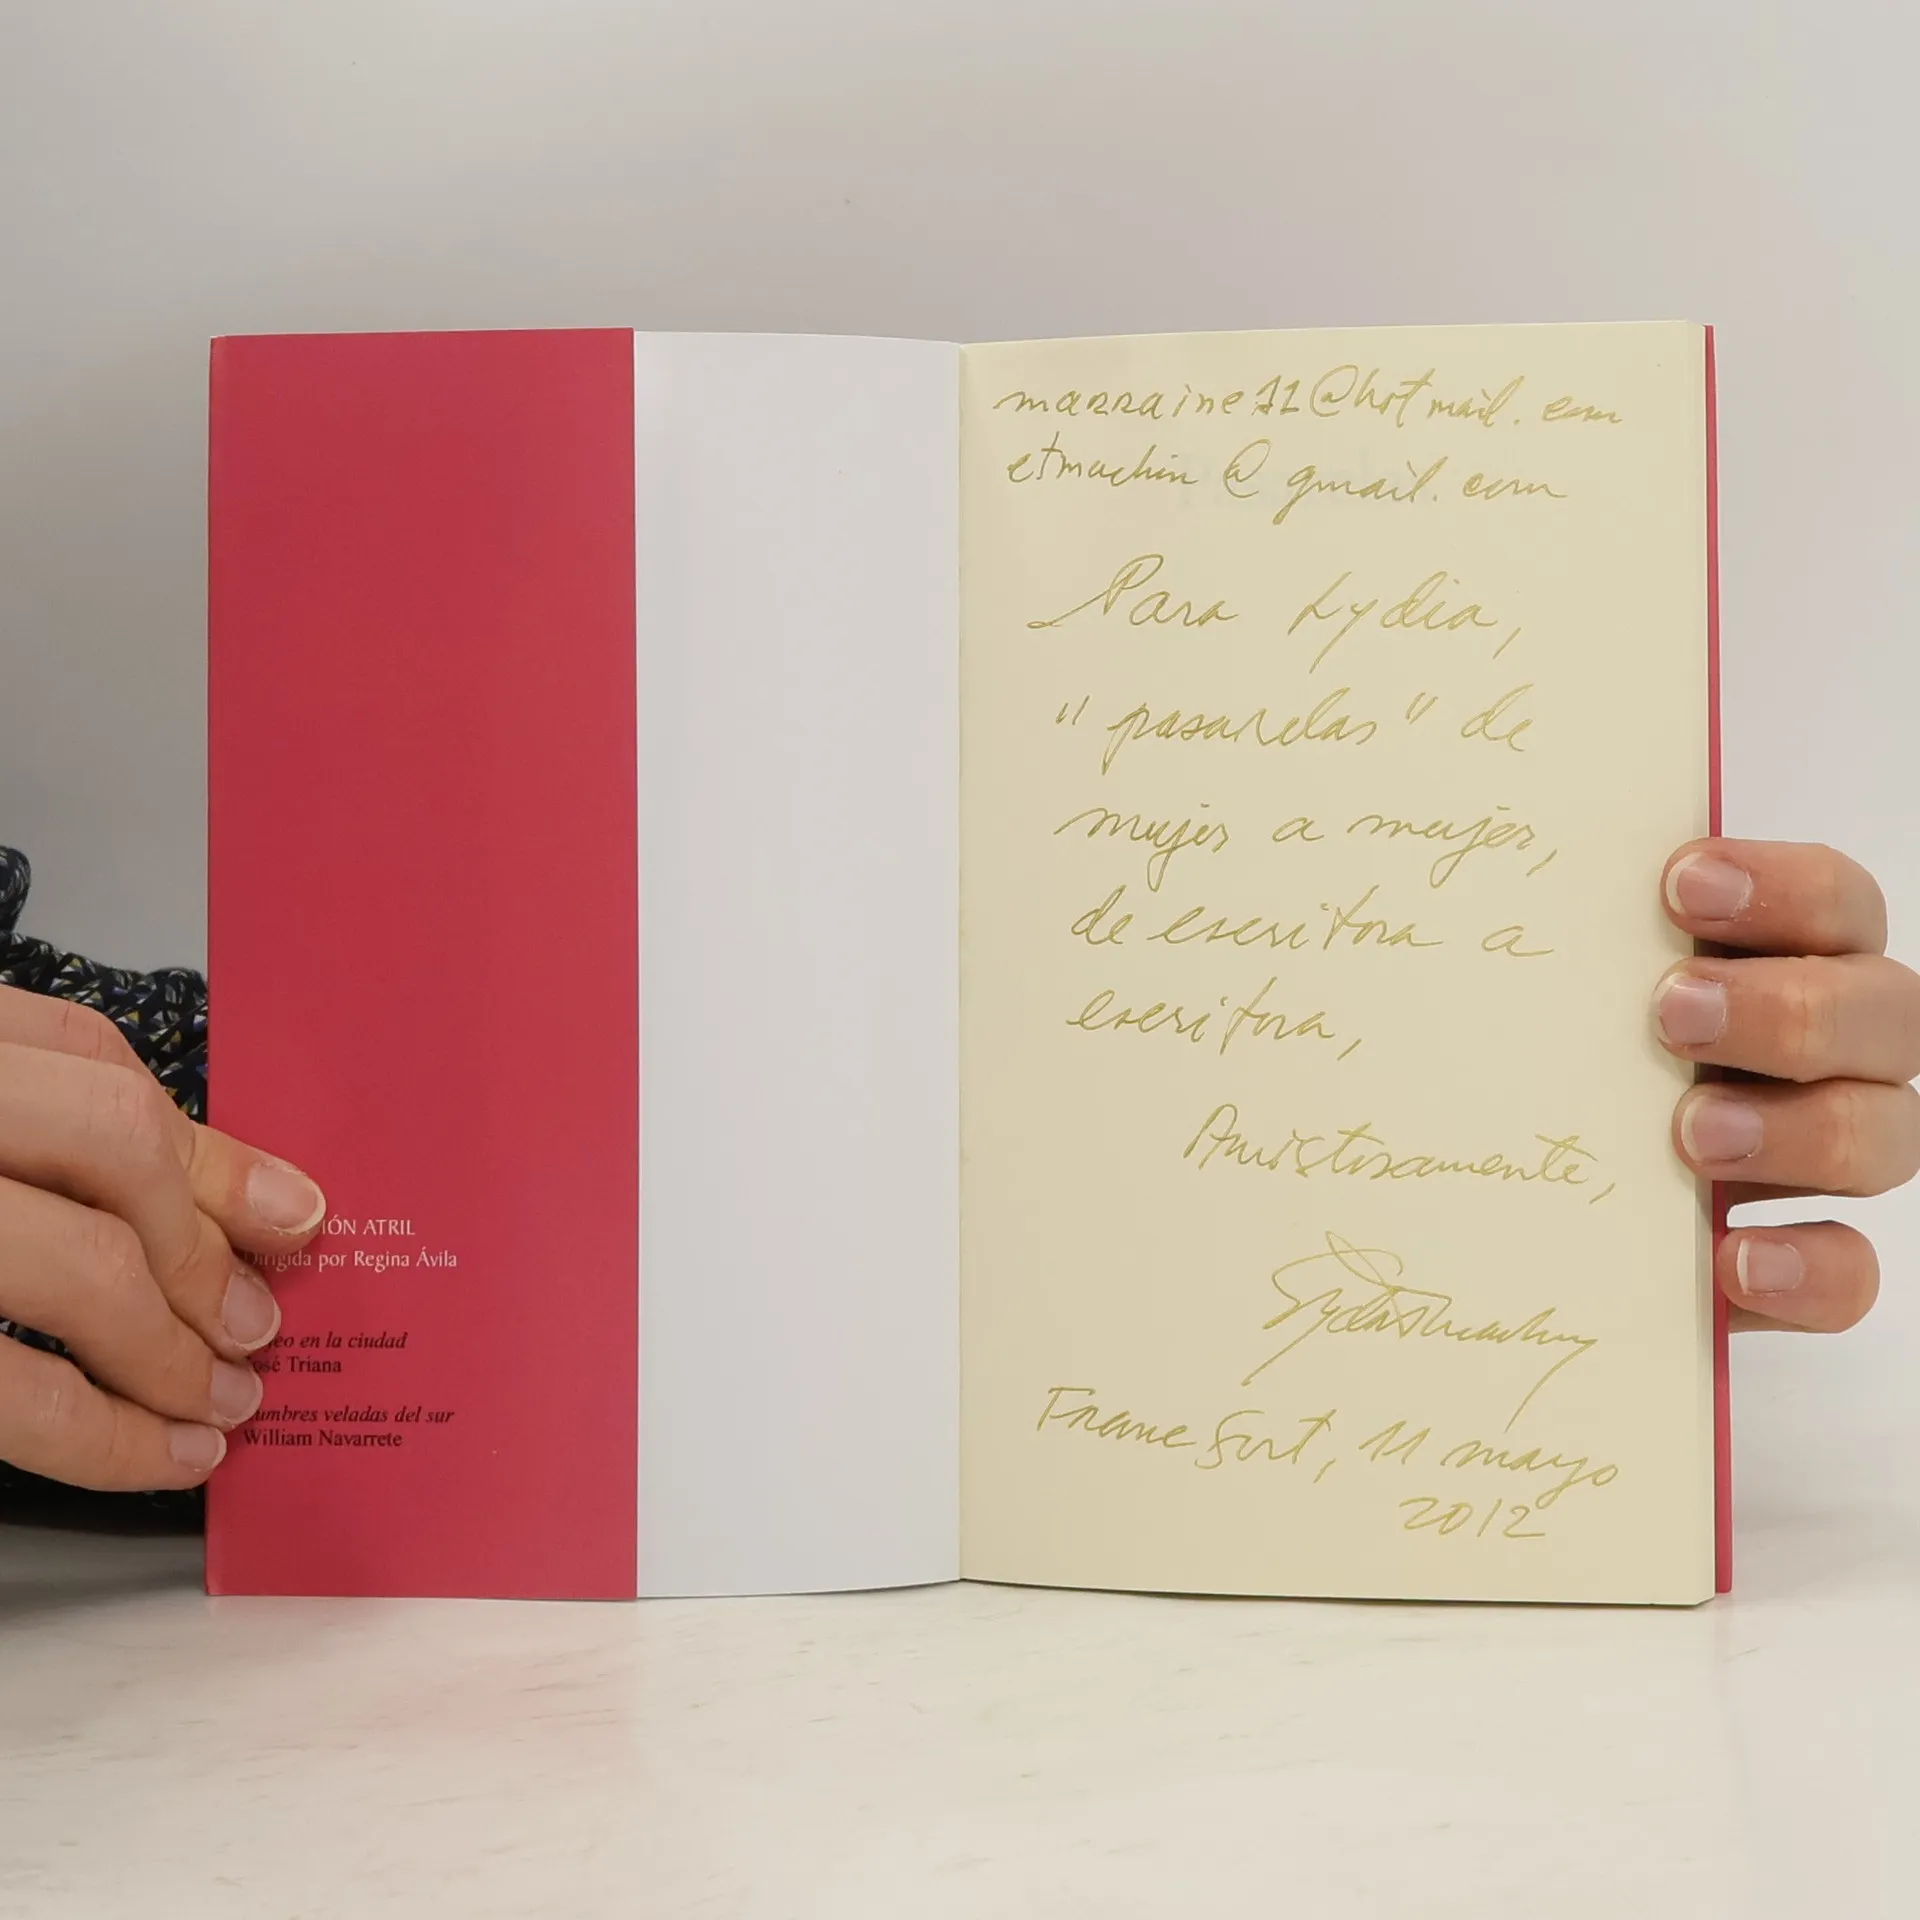 IÓN ATRIL
Dirigida por Regina Ávila
en la ciudad
José Triana
umbres veladas del sur
William Navarrete
marraine11@hotmail.com
etmachin@gmail.com
Para Lydia,
"pasarelas" de
mujer a mujer,
de escritora a
escritora,
Amistosamente,
Francfort, 11 mayo
2012